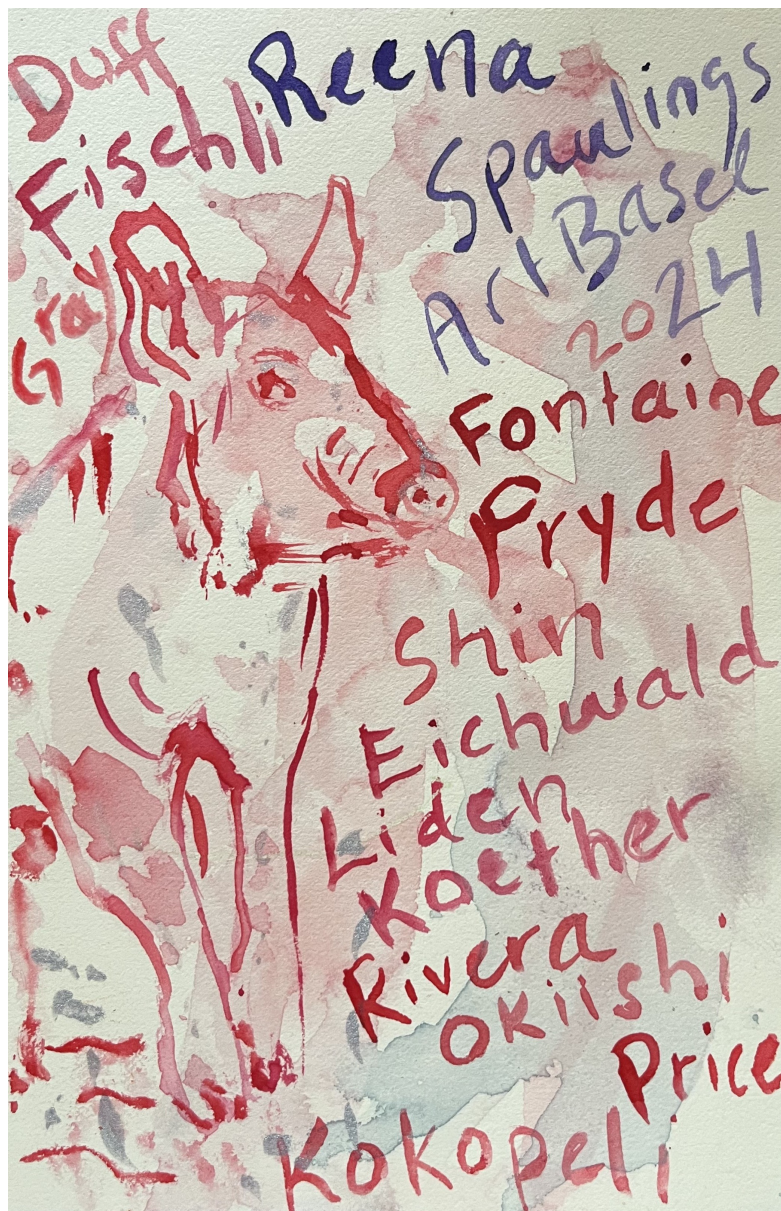 Duff
Fischli
Gray
Reena
Spaulings
Art Basel
2024
Fontaine
Pryde
Shin
Eichwald
Liden
Koether
Rivera
Okiishi
Price
Kokopeli